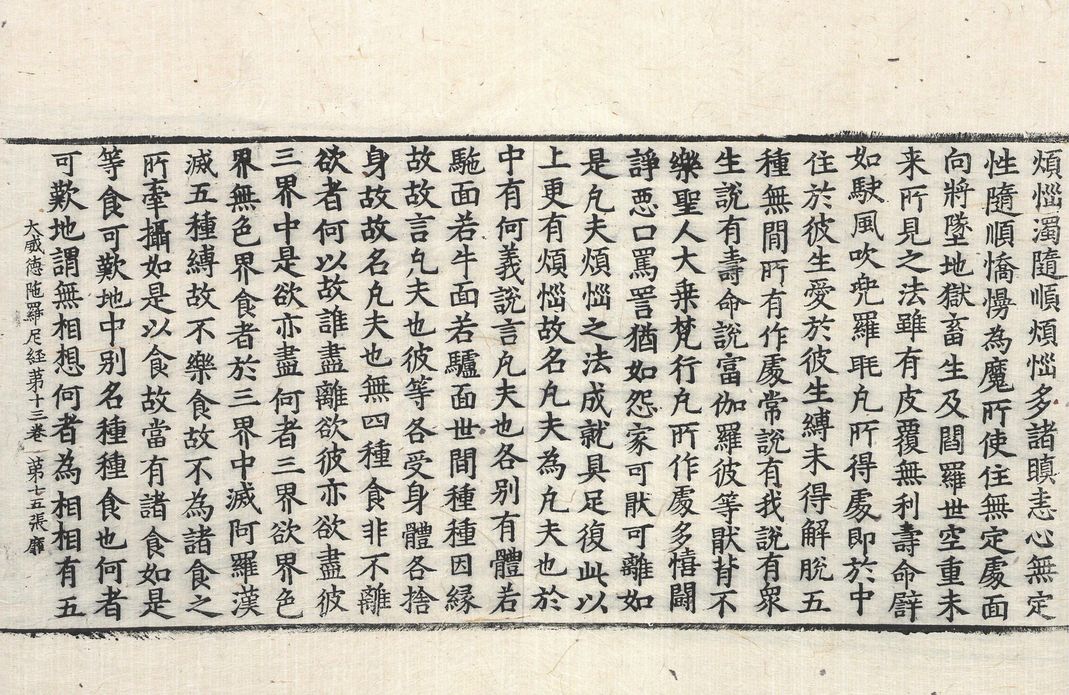 煩惱濁隨順煩惱多諸瞋恚心無定
性隨順憍慢為魔所使住無定處面
向將墜地獄畜生及閻羅世空重未
来所見之法雖有皮覆無利壽命譬
如駛風吹兜羅毦凡所得處即於中
住於彼生愛於彼生縛未得解脫五
種無閒所有作處常說有我說有衆
生說有壽命說富伽羅彼等猒背不
樂聖人大乗梵行凡所作處多憘鬪
諍惡口罵詈猶如怨家可猒可離如
是凡夫煩惱之法成就具足復此以
上更有煩惱故名凡夫為凡夫也於
中有何義說言凡夫也各别有體若
駞面若牛面若驢面世間種種因縁
故故言凡夫也彼等各受身體各捨
身故故名凡夫也無四種食非不離
欲者何以故誰盡離欲彼亦欲盡彼
三界中是欲亦盡何者三界欲界色
界無色界食者於三界中滅阿羅漢
滅五種縛故不樂食故不為諸食之
所牽攝如是以食故當有諸食如是
等食可歎地中别名種種食也何者
可歎地謂無相想何者為相相有五
大威德陁羅尼経苐十三卷 苐十五張 靡